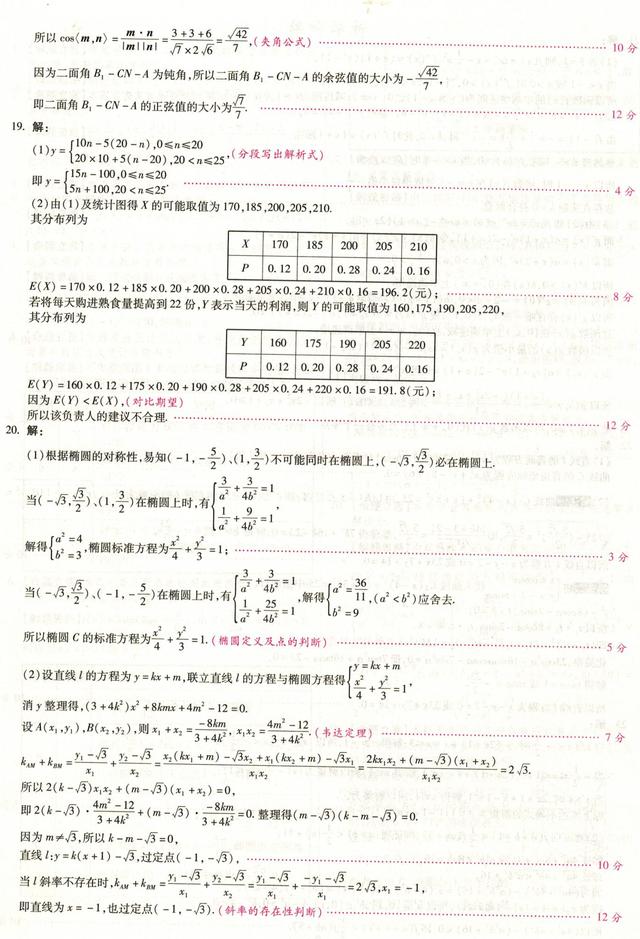 所以 cos⟨m,n⟩ = m·n / |m||n| = (3+3+6) / (√7×2√6) = √42/7,(夹角公式) 10 分
因为二面角 B₁-CN-A 为钝角,所以二面角 B₁-CN-A 的余弦值的大小为 -√42/7,
即二面角 B₁-CN-A 的正弦值的大小为 √7/7. 12 分
19. 解:
(1) y = { 10n-5(20-n),0≤n≤20
20×10+5(n-20),20<n≤25 ,(分段写出解析式)
即 y = { 15n-100,0≤n≤20
5n+100,20<n≤25 . 4 分
(2)由(1)及统计图得 X 的可能取值为 170,185,200,205,210.
其分布列为
X 170 185 200 205 210
P 0.12 0.20 0.28 0.24 0.16
E(X)=170×0.12+185×0.20+200×0.28+205×0.24+210×0.16=196.2(元); 8 分
若将每天购进熟食量提高到 22 份,Y 表示当天的利润,则 Y 的可能取值为 160,175,190,205,220,
其分布列为
Y 160 175 190 205 220
P 0.12 0.20 0.28 0.24 0.16
E(Y)=160×0.12+175×0.20+190×0.28+205×0.24+220×0.16=191.8(元);
因为 E(Y)<E(X),(对比期望)
所以该负责人的建议不合理. 12 分
20. 解:
(1)根据椭圆的对称性,易知(-1,-5/2)、(1,3/2)不可能同时在椭圆上,(-√3,√3/2)必在椭圆上.
当(-√3,√3/2)、(1,3/2)在椭圆上时,有 { 3/a²+3/4b²=1
1/a²+9/4b²=1 ,
解得 { a²=4
b²=3 ,椭圆标准方程为 x²/4+y²/3=1; 3 分
当(-√3,√3/2)、(-1,-5/2)在椭圆上时,有 { 3/a²+3/4b²=1
1/a²+25/4b²=1 ,解得 { a²=36/11
b²=9 ,(a²<b²)应舍去.
所以椭圆 C 的标准方程为 x²/4+y²/3=1.(椭圆定义及点的判断) 5 分
(2)设直线 l 的方程为 y=kx+m,联立直线 l 的方程与椭圆方程得 { y=kx+m
x²/4+y²/3=1 ,
消 y 整理得,(3+4k²)x²+8kmx+4m²-12=0.
设 A(x₁,y₁),B(x₂,y₂),则 x₁+x₂=-8km/(3+4k²), x₁x₂=(4m²-12)/(3+4k²).(韦达定理) 7 分
k_AM+k_BM=(y₁-√3)/x₁+(y₂-√3)/x₂=(x₂(kx₁+m)-√3x₂+x₁(kx₂+m)-√3x₁)/x₁x₂=(2kx₁x₂+(m-√3)(x₁+x₂))/x₁x₂=2√3.
所以 2(k-√3)x₁x₂+(m-√3)(x₁+x₂)=0,
即 2(k-√3)·(4m²-12)/(3+4k²)+(m-√3)·-8km/(3+4k²)=0. 整理得(m-√3)(k-m-√3)=0.
因为 m≠√3,所以 k-m-√3=0,
直线 l:y=k(x+1)-√3,过定点(-1,-√3), 10 分
当 l 斜率不存在时,k_AM+k_BM=(y₁-√3)/x₁+(y₂-√3)/x₂=(y₁-√3)/x₁+(-y₁-√3)/x₁=2√3,x₁=-1,
即直线为 x=-1,也过定点(-1,-√3).(斜率的存在性判断) 12 分